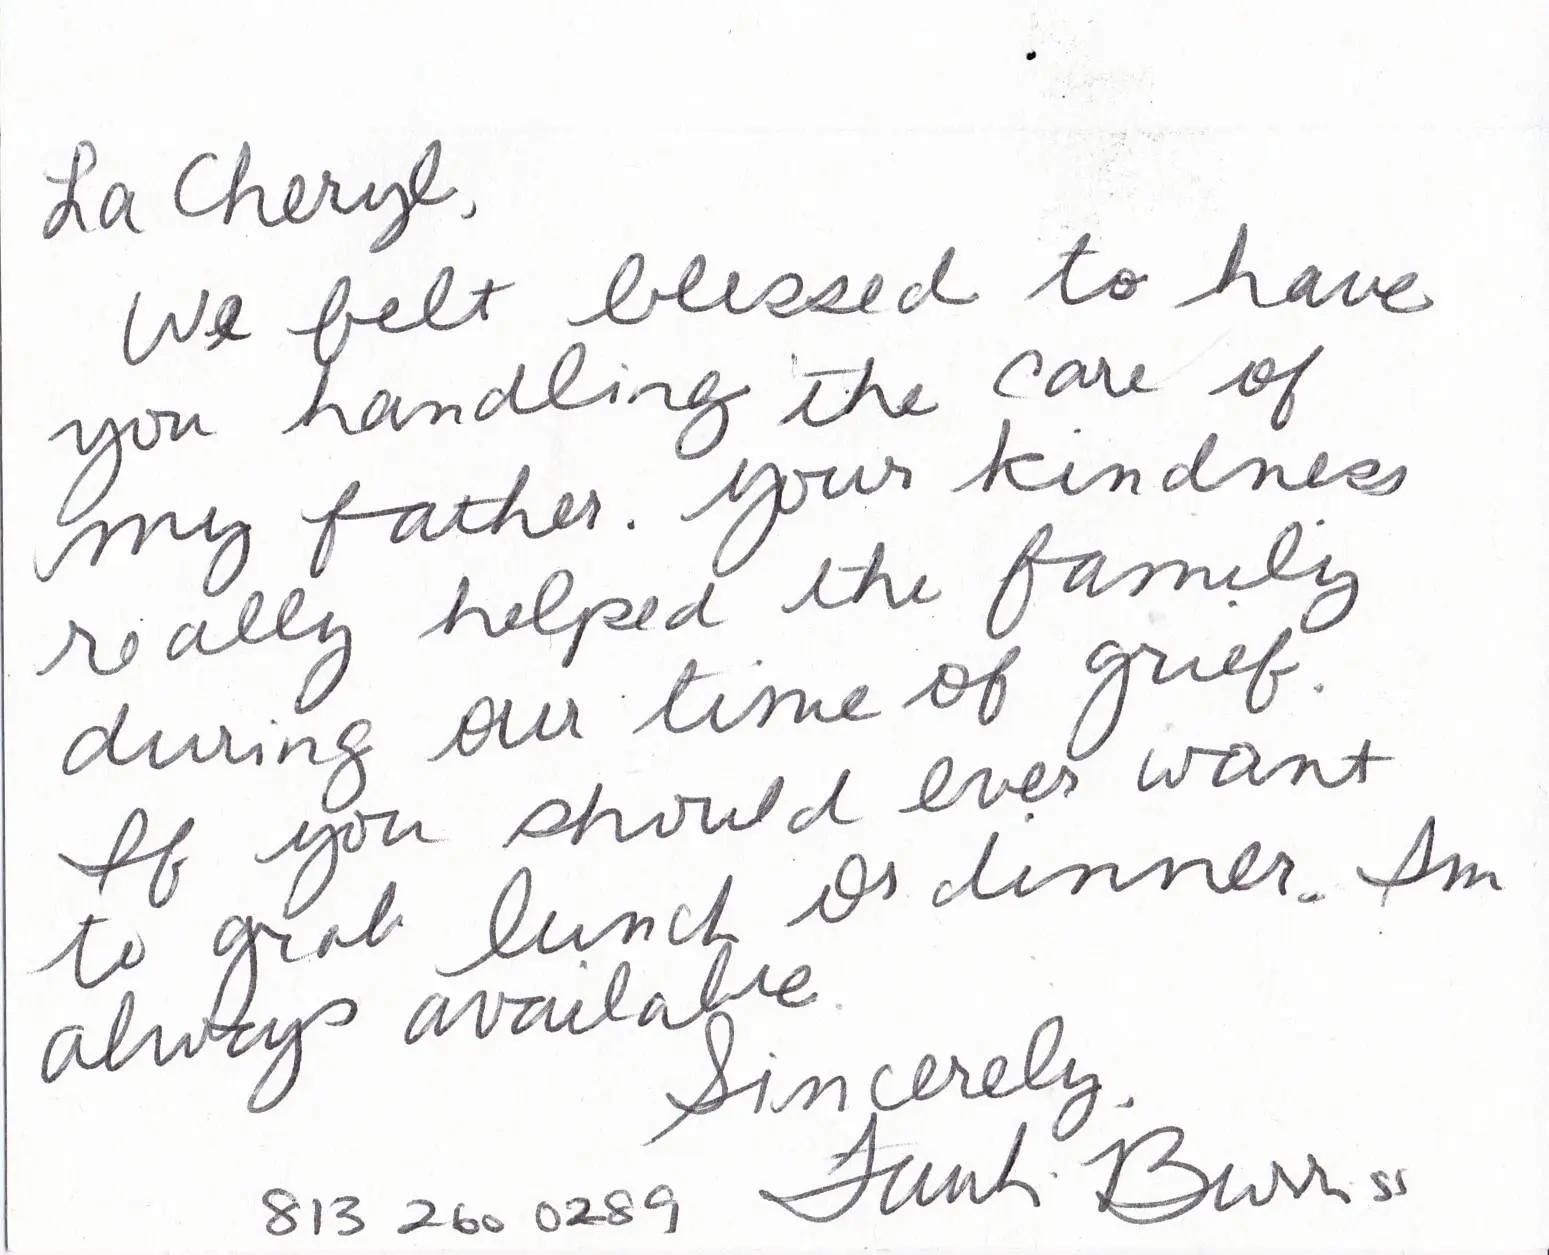 La Cheryl,
We felt blessed to have
you handling the care of
my father. Your kindness
really helped the family
during our time of grief.
If you should ever want
to grab lunch or dinner. Im
always available.
Sincerely,
Burriss
813 260 0289